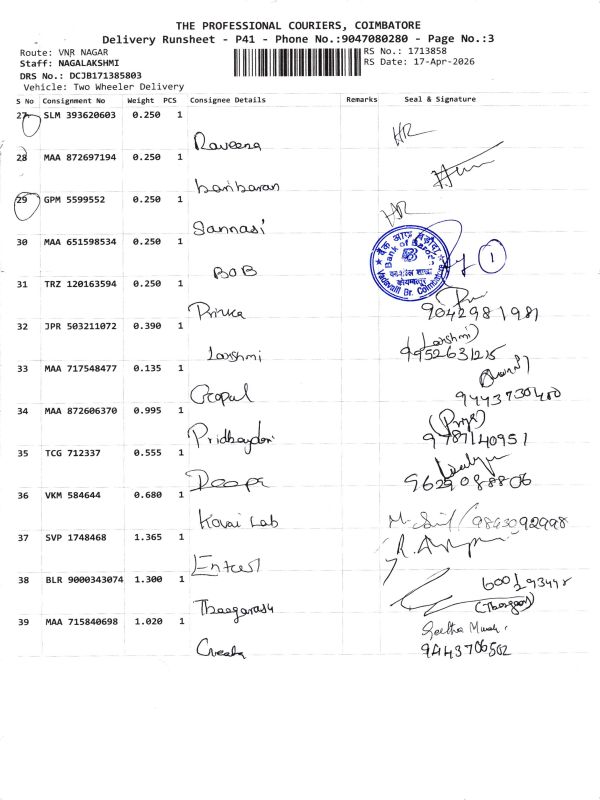 THE PROFESSIONAL COURIERS, COIMBATORE
Delivery Runsheet - P41 - Phone No.:9047080280 - Page No.:3
Route: VNR NAGAR
RS No.: 1713858
Staff: NAGALAKSHMI
RS Date: 17-Apr-2026
DRS No.: DCJB171385803
Vehicle: Two Wheeler Delivery
S No Consignment No Weight PCS Consignee Details Remarks Seal & Signature
27 SLM 393620603 0.250 1
Raveena HR
28 MAA 872697194 0.250 1
hariharan
29 GPM 5599552 0.250 1
Sannasi HR
30 MAA 651598534 0.250 1
BOB
बैंक ऑफ़ बड़ौदा
Bank of Baroda
कोयम्बतूर
Vadavalli Br. Coimbatore
1
31 TRZ 120163594 0.250 1
9042981981
32 JPR 503211072 0.390 1
Lakshmi (Lakshmi)
9952631215
33 MAA 717548477 0.135 1
Gopal
9443730400
34 MAA 872606370 0.995 1
(Priya)
9787140951
35 TCG 712337 0.555 1
Deepa
9629088806
36 VKM 584644 0.680 1
Kovai Lab
9843092998
37 SVP 1748468 1.365 1
38 BLR 9000343074 1.300 1
Thaagarash
39 MAA 715840698 1.020 1
Geetha
9443706502